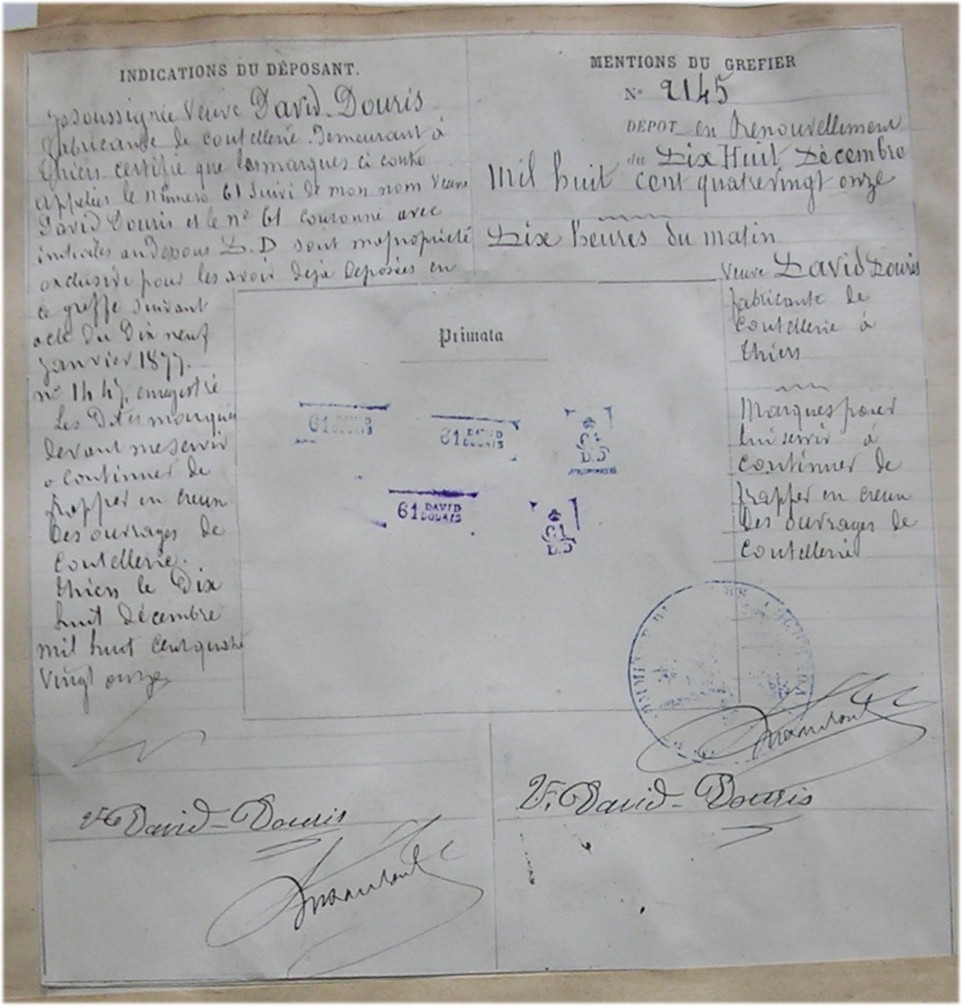 INDICATIONS DU DÉPOSANT.
Je soussignée Veuve David-Douris
fabricante de coutellerie demeurant à
Thiers certifie que les marques ci contre
appelées le numero 61 suivi de mon nom Veuve
David Douris et le n° 61 couronné avec
initiales au dessous D.D sont ma propriété
exclusive pour les avoir deja deposées en
ce greffe suivant
acte du dix neuf
Janvier 1877.
n° 1447, enregistré
Les dites marques
devant me servir
a continuer de
frapper en creux
des ouvrages de
coutellerie.
Thiers le Dix
huit décembre
mil huit cent quatre
vingt onze
MENTIONS DU GREFIER
N° 2145
DÉPOT en Renouvellement
du Dix Huit Décembre
Mil huit cent quatrevingt onze
Dix heures du matin
Veuve David Douris
fabricante de
coutellerie à
Thiers
Marques pour
lui servir à
continuer de
frapper en creux
des ouvrages de
coutellerie
Primata
61
61 DAVID DOURIS
61 D.D
61 DAVID DOURIS
61 D.D
Ve David-Douris
Ve David-Douris